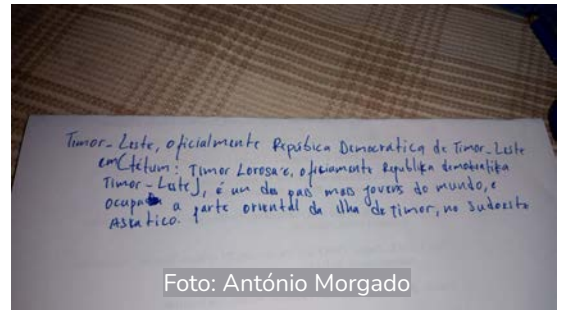 Timor-Leste, oficialmente Repúbica Democrática de Timor-Leste
em(tétum: Timor Lorosa'e, ofisiamente Republika demokratika
Timor-Leste), é un dos pais mais jovens do mundo, e
ocupa a parte oriental da ilha de timor, no Sudoeste
Asiatico.
Foto: António Morgado